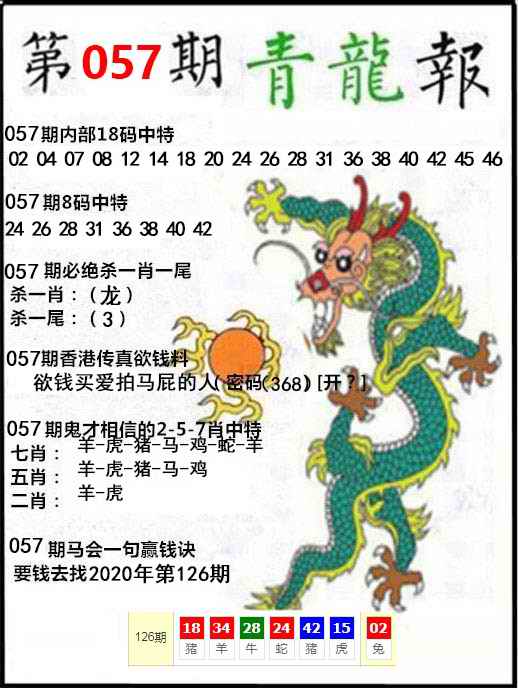 第057期青龍報
057期内部18码中特
02 04 07 08 12 14 18 20 24 26 28 31 36 38 40 42 45 46
057期8码中特
24 26 28 31 36 38 40 42
057期必绝杀一肖一尾
杀一肖：（龙）
杀一尾：（3）
057期香港传真欲钱料
欲钱买爱拍马屁的人(密码(368)[开？]
057期鬼才相信的2-5-7肖中特
七肖： 羊-虎-猪-马-鸡-蛇-羊
五肖： 羊-虎-猪-马-鸡
二肖： 羊-虎
057期马会一句赢钱诀
要钱去找2020年第126期
126期 18 34 28 24 42 15 02
猪 羊 牛 蛇 猪 虎 兔